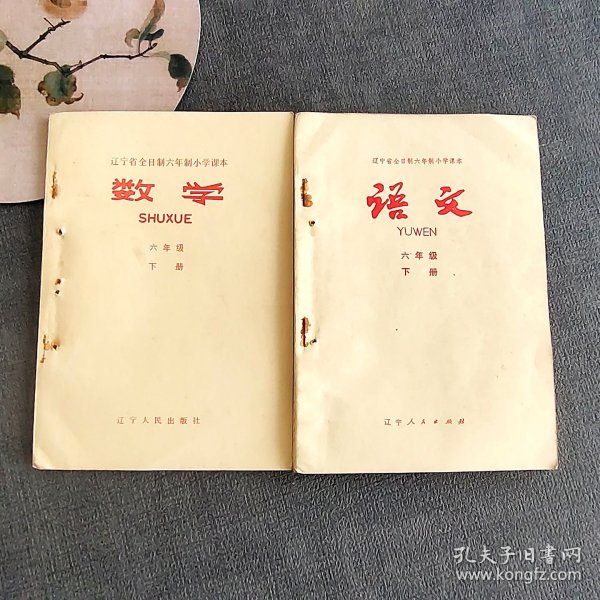 辽宁省全日制六年制小学课本
数学
SHUXUE
六年级
下册
辽宁人民出版社
辽宁省全日制六年制小学课本
语文
YUWEN
六年级
下册
辽宁人民出版社
孔夫子旧书网
www.kongfz.com